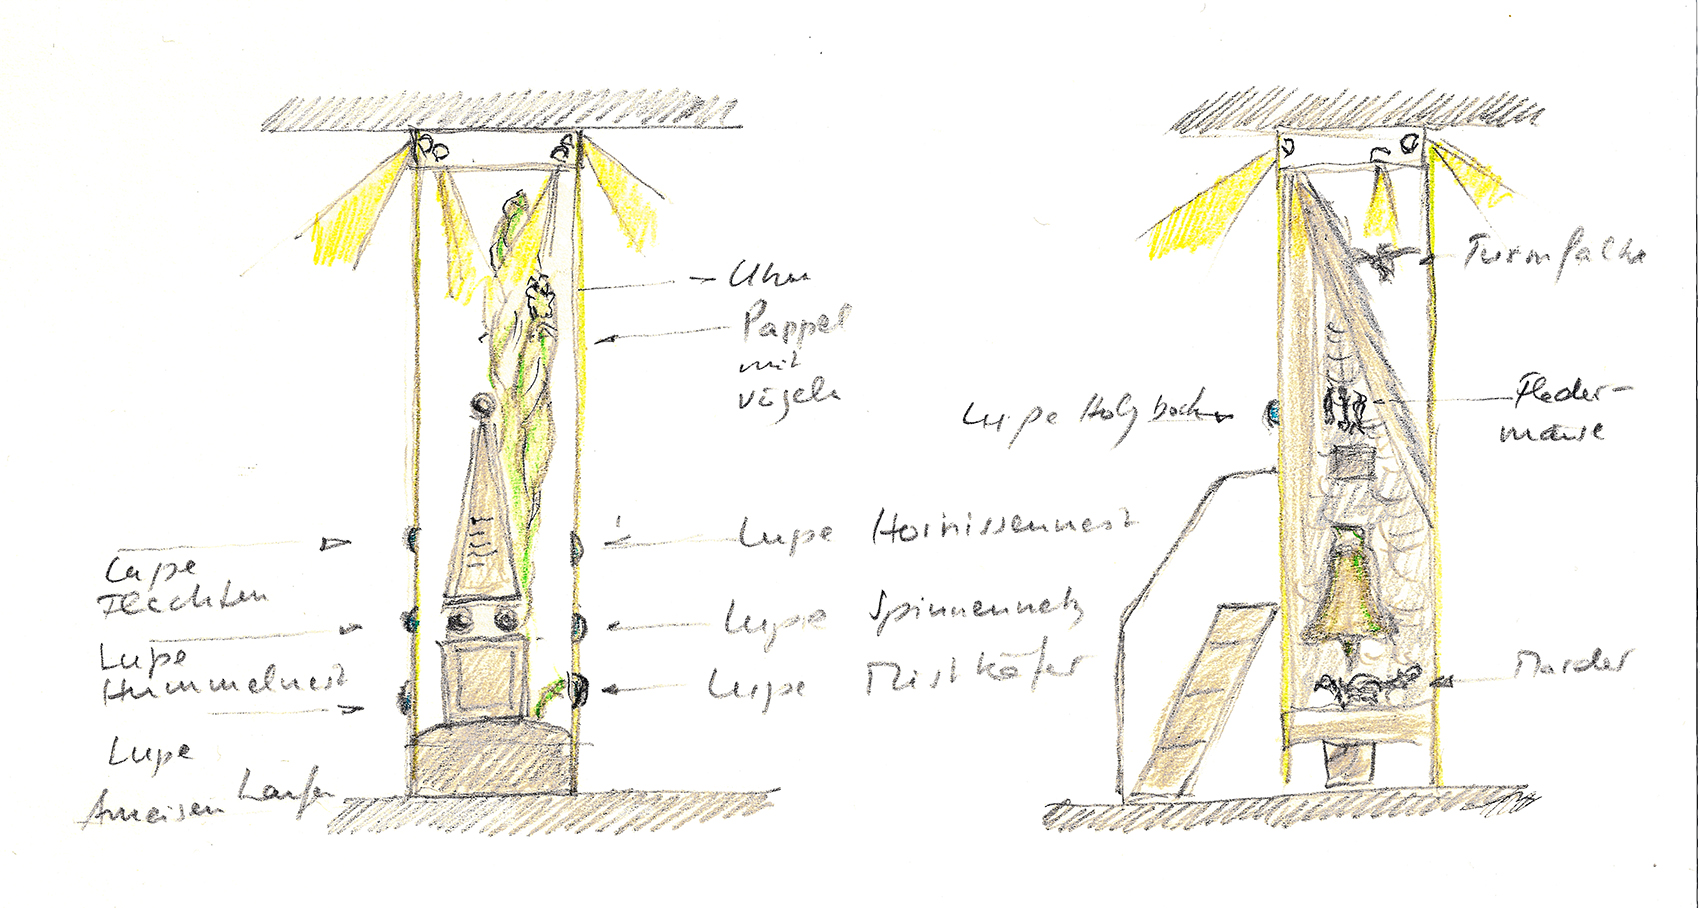 Uhu
Pappel
mit
Vögeln
Lupe
Flechten
Lupe
Hummelnest
Lupe
Ameisen Haufen
Lupe Hornissennest
Lupe Spinnennetz
Lupe Mistkäfer
Turmfalke
Lupe Holzbock
Fleder-
mäuse
Marder